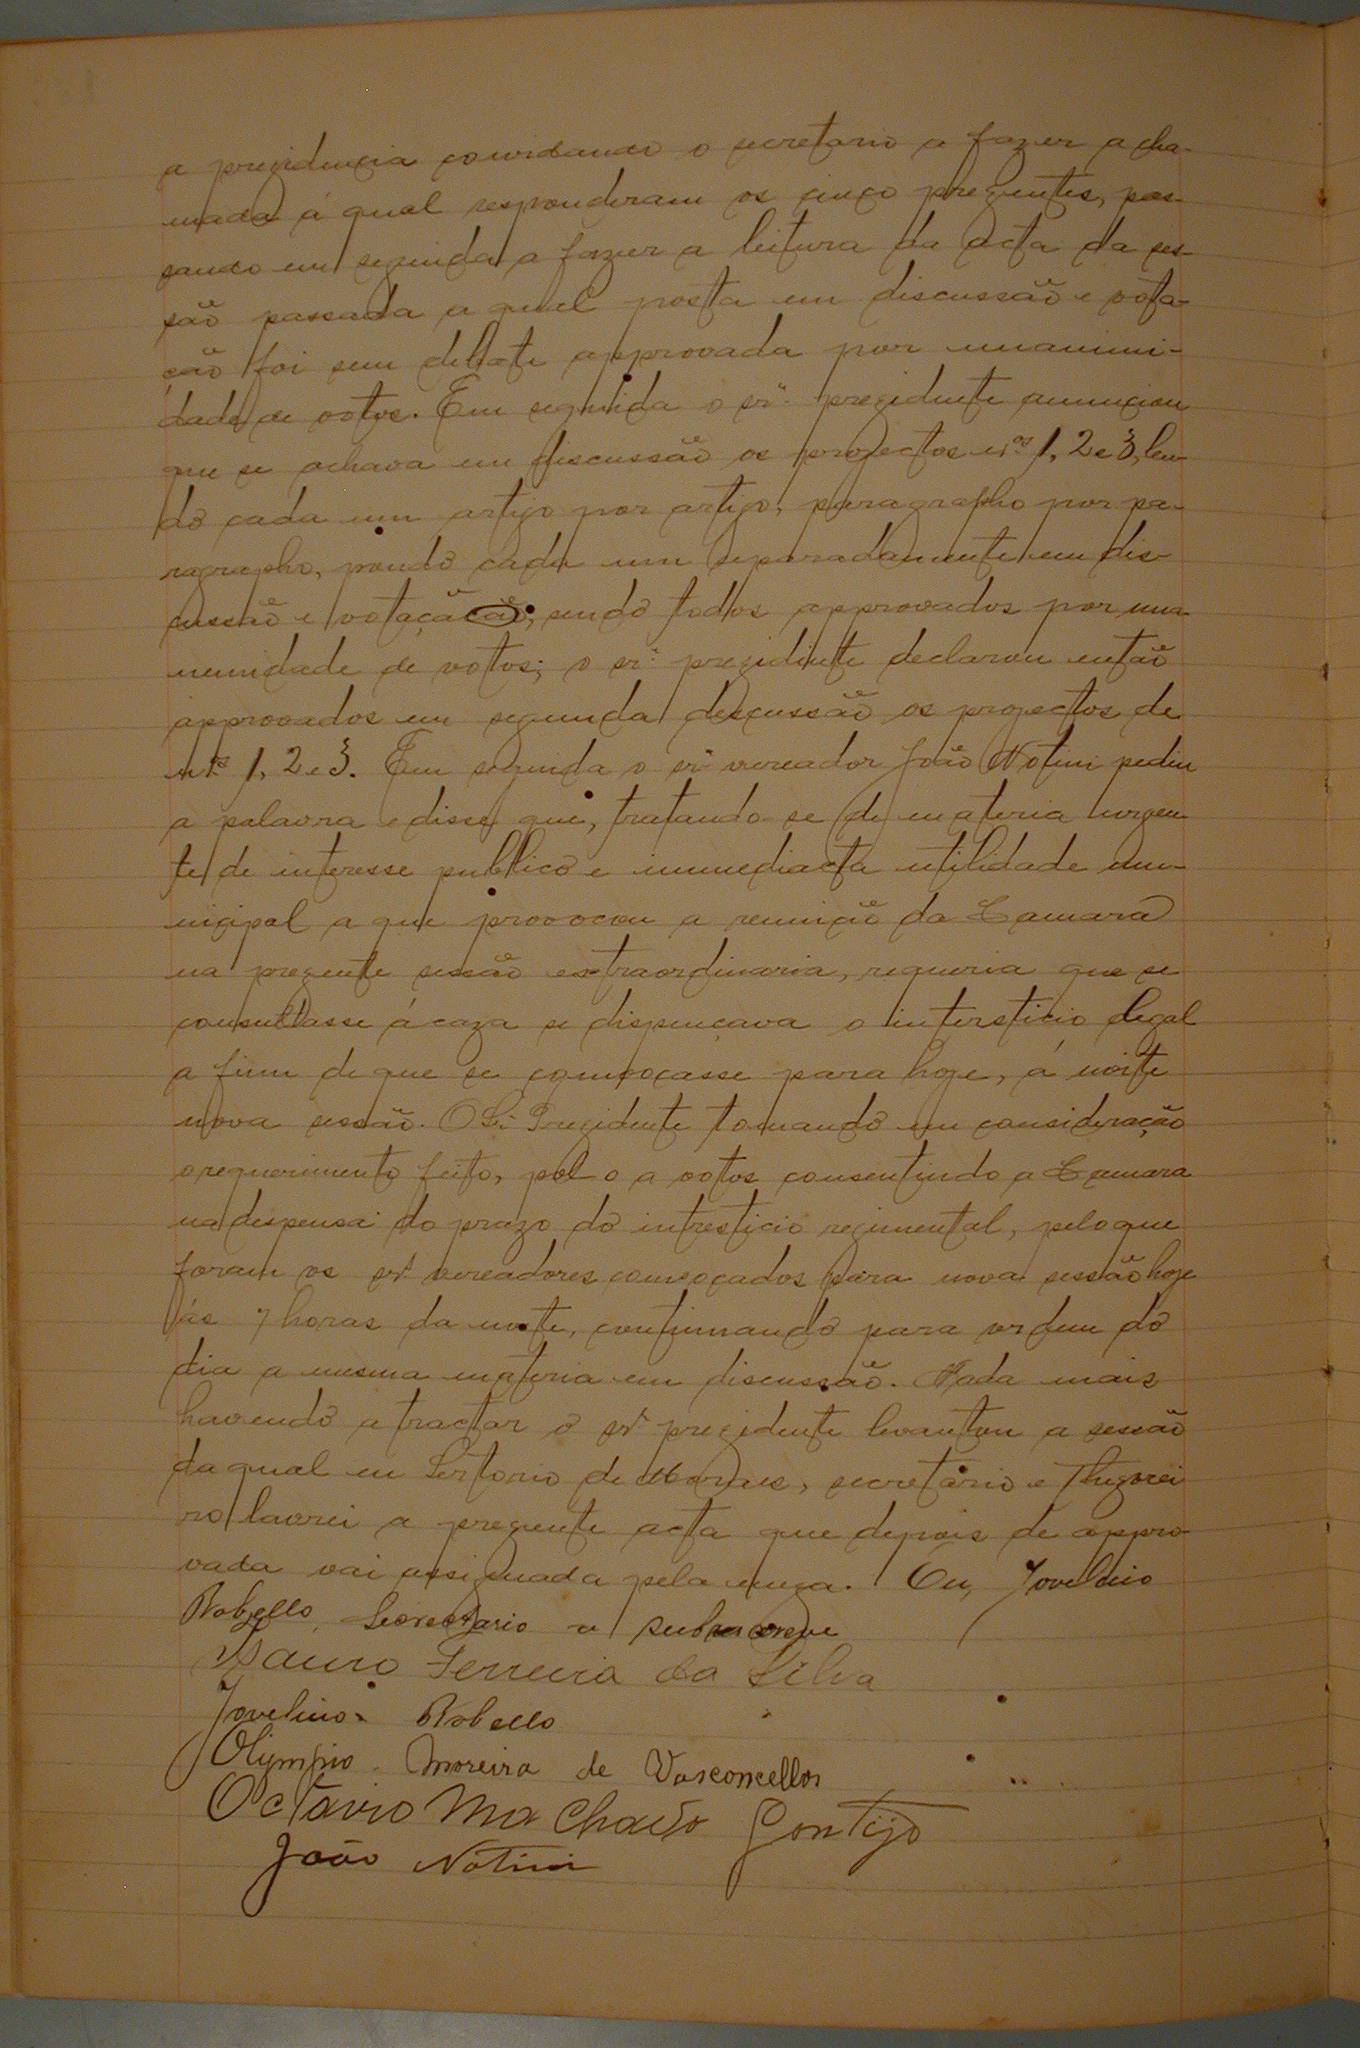 a prezidencia convidando o secretario a fazer a cha-
mada á qual responderam os cinco prezentes, pas-
sando em seguida a fazer a leitura da acta da ses-
são passada a qual posta em discussão e vota-
ção foi sem debate approvada por unanimi-
dade de votos. Em seguida o sr. prezidente annunciou
que se achava em discussão os projectos nos 1, 2 e 3, len-
do cada um artigo por artigo, paragrapho por pa-
ragrapho, pondo cada um separadamente em dis-
cussão e votaçãcão; sendo todos approvados por una-
nemidade de votos; o sr. prezidente declarou então
approvados em segunda descussão os projectos de
nos 1, 2 e 3. Em seguida o sr. vereador João Notini pediu
a palavra e disse que, tratando-se de materia urgen-
te de interesse publico e immediacta utilidade mu-
nicipal a que provocou a reunição da Camara
na prezente sessão extraordinaria, requeria que se
consultasse á caza se dispençava o intersticio legal
a fim de que se convocasse para hoje, á noite
nova sessão. O Sr. Prezidente tomando em consideração
o requerimento feito, pol-o a votos consentindo a Camara
na despensa do prazo do intresticio regimental, pelo que
foram os srs. vereadores convocados para nova sessão hoje
ás 7 horas da noite, continuando para ordem do
dia a mesma materia em discussão. Nada mais
havendo a tractar o sr. prezidente levantou a sessão
da qual eu Sertorio de Moraes, secretario e Thezorei
ro lavrei a prezente acta que depois de appro-
vada vai assignada pela meza. Eu, Jovelino
Rabello, Secrectario a subscreve
Isauro Ferreira da Silva
Jovelino Rabello
Olympio Moreira de Vasconcellos
Octávio Machado Gontijo
João Notini